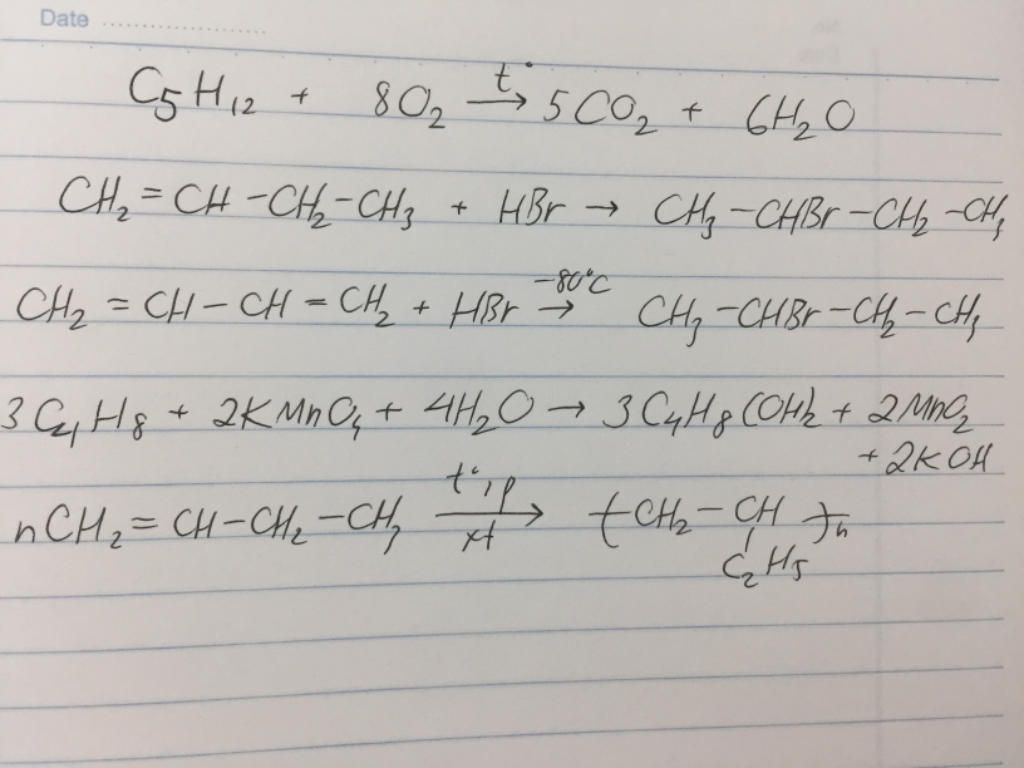 Date
C₅H₁₂ + 8O₂ →(t°) 5CO₂ + 6H₂O
CH₂ = CH - CH₂ - CH₃ + HBr → CH₃ - CHBr - CH₂ - CH₃
CH₂ = CH - CH = CH₂ + HBr →(-80°C) CH₃ - CHBr - CH₂ - CH₃
3C₄H₈ + 2KMnO₄ + 4H₂O → 3C₄H₈(OH)₂ + 2MnO₂
+ 2KOH
nCH₂ = CH - CH₂ - CH₃ →(t°, p / xt) (CH₂ - CH)ₙ
C₂H₅